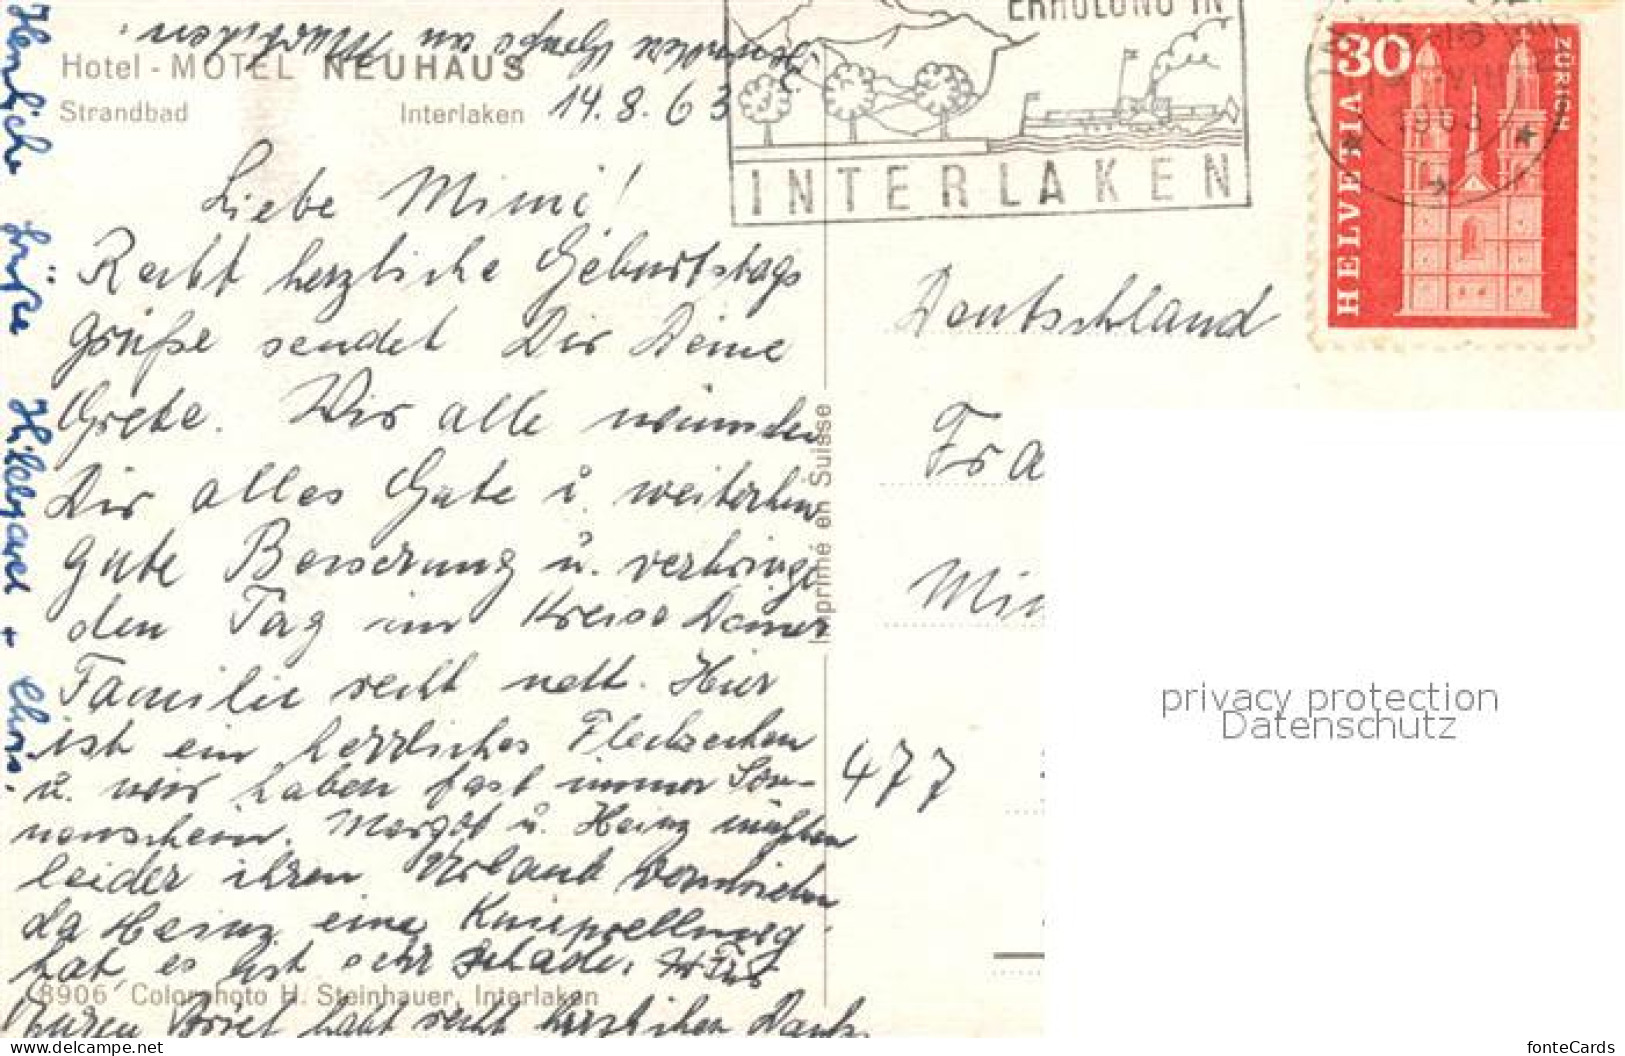 Hotel - MOTEL NEUHAUS
Strandbad Interlaken
14.8.63
Liebe Mimi!
Recht herzliche Geburtstags
grüße sendet Dir Deine
Grete. Wir alle wünschen
Dir alles Gute u. weiterhin
gute Besserung u. verbringe
den Tag im Kreise Deiner
Familie recht nett. Hier
ist ein herrliches Fleckchen
u. wir haben fast immer Son-
nenschein. Margot u. Heinz mußten
leider ihren Urlaub
da Heinz eine Knieprellung
hat, es ist sehr schade. Für
Euren Brief habt recht herzlichen Dank.
an Mathilden.
Herzliche Grüße Hildegard + Chris.
8906 Colorphoto H. Steinhauer, Interlaken
Imprimé en Suisse
ERHOLUNG IN
INTERLAKEN
1963
30
ZÜRICH
HELVETIA
Deutschland
Fra
477
privacy protection
Datenschutz
www.delcampe.net
fonteCards